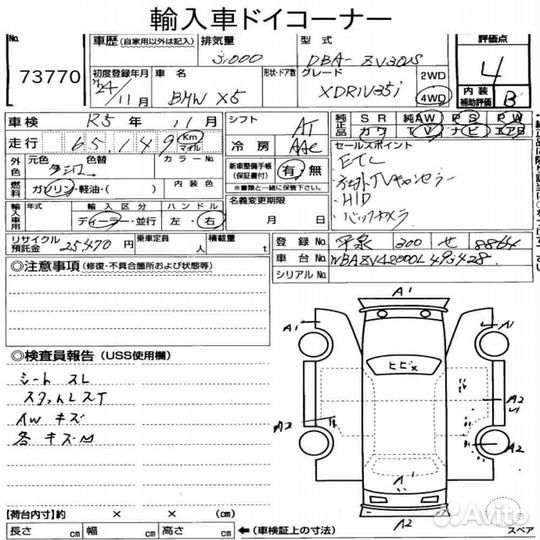 輸入車ドイコーナー
出品番号 73770
車歴 (自家用以外は記入)
排気量 3.000
型式 DBA- ZV30S
評価点 4
内装補助評価 B
初度登録年月 24/11月
車名 BMW X5
形状・ドア数
グレード XDRIV35i
2WD
4WD
車検 R5年 11月
走行 65,149 Km マイル
シフト AT
冷房 AAC
純正品 SR 純AW PS PW
カワ TV ナビ エアB
外色 元色 色替
カラーNo.
燃料 ガソリン・軽油・( )
内装色
新車整備手帳(保証書付) 有・無
※書類と一緒に保管して下さい。
セールスポイント
ETC
HID
バックカメラ
輸入車用 年式 輸入区分 ハンドル
ディーラー・並行 左・右
名義変更期限 月 日
リサイクル預託金 25470円
乗車定員 人
積載量 t
登録No. 300 せ 8864
車台No. WBAZV42000L495428
シリアルNo.
◎注意事項 (修復・不具合箇所および状態等)
◎検査員報告 (USS使用欄)
シート スレ
AW キズ
各 キズ凹
A1
A1
A1
ヒビ×
A2
A2
A1
A2
【荷台内寸】約 × × (cm)
長さ cm 幅 cm 高さ cm ←(車検証上の寸法)
スペア
Avito